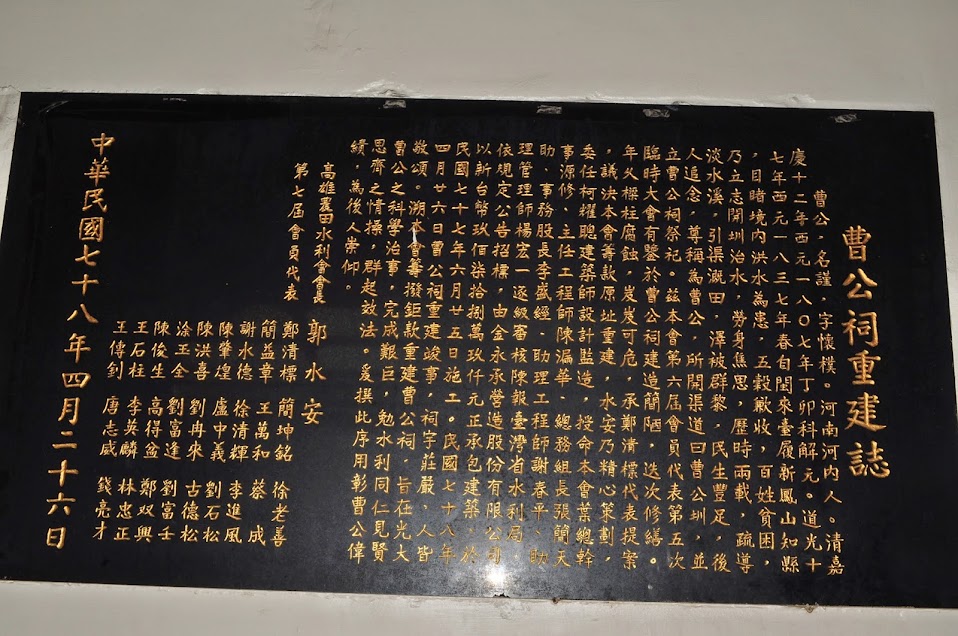 曹公祠重建誌
曹公，名謹，字懷樸。河南河內人。清嘉
慶十二年西元一八〇七年丁卯科解元。道光十
七年西元一八三七年春自閩來臺履新鳳山知縣
，目睹境內洪水為患，五穀歉收，百姓貧困，
乃立志開圳治水，勞身焦思，歷時兩載，疏導
淡水溪，引渠溉田，澤被群黎，民生豐足，後
人追念，尊稱為曹公，所開渠道曰曹公圳，並
立曹公祠祭祀。茲本會第六屆會員代表第五次
臨時大會有鑒於曹公祠建造簡陋，迭次修繕。
年久樑柱腐蝕，岌岌可危，承鄭清標代表提案
，議決本會籌款原址重建，水安乃精心策劃，
委任柯耀聰建築師設計監造，授命本會葉總幹
事源修、主任工程師陳漏華、總務組長張簡天
助、事務股長李盛經、助理工程師謝春平、助
理管理師楊宏一逐級審核陳報臺灣省水利局，
依規定公告招標，由金永承營造股份有限公司
以新台幣玖佰柒拾捌萬玖仟元正承包建築，於
民國七十七年六月廿五日施工。民國七十八年
四月廿六日曹公祠重建竣事，祠宇莊嚴，人皆
敬頌。溯本會籌撥鉅款重建曹公祠，旨在光大
曹公之科學治事，完成艱巨，勉水利同仁見賢
思齊之情操，群起效法。爰撰此序用彰曹公偉
績，為後人崇仰。
高雄農田水利會會長 郭水安
第七屆會員代表 鄭清標 簡坤銘 徐老喜
簡益章 王萬和 蔡成
謝水德 徐清輝 李進風
陳肇煌 盧中義 劉石松
陳洪喜 劉冉來 古德松
涂玉全 劉富逢 劉富壬
陳俊生 高得盆 鄭双興
王石柱 李英麟 林忠正
王傳釗 唐志威 錢亮才
中華民國七十八年四月二十六日